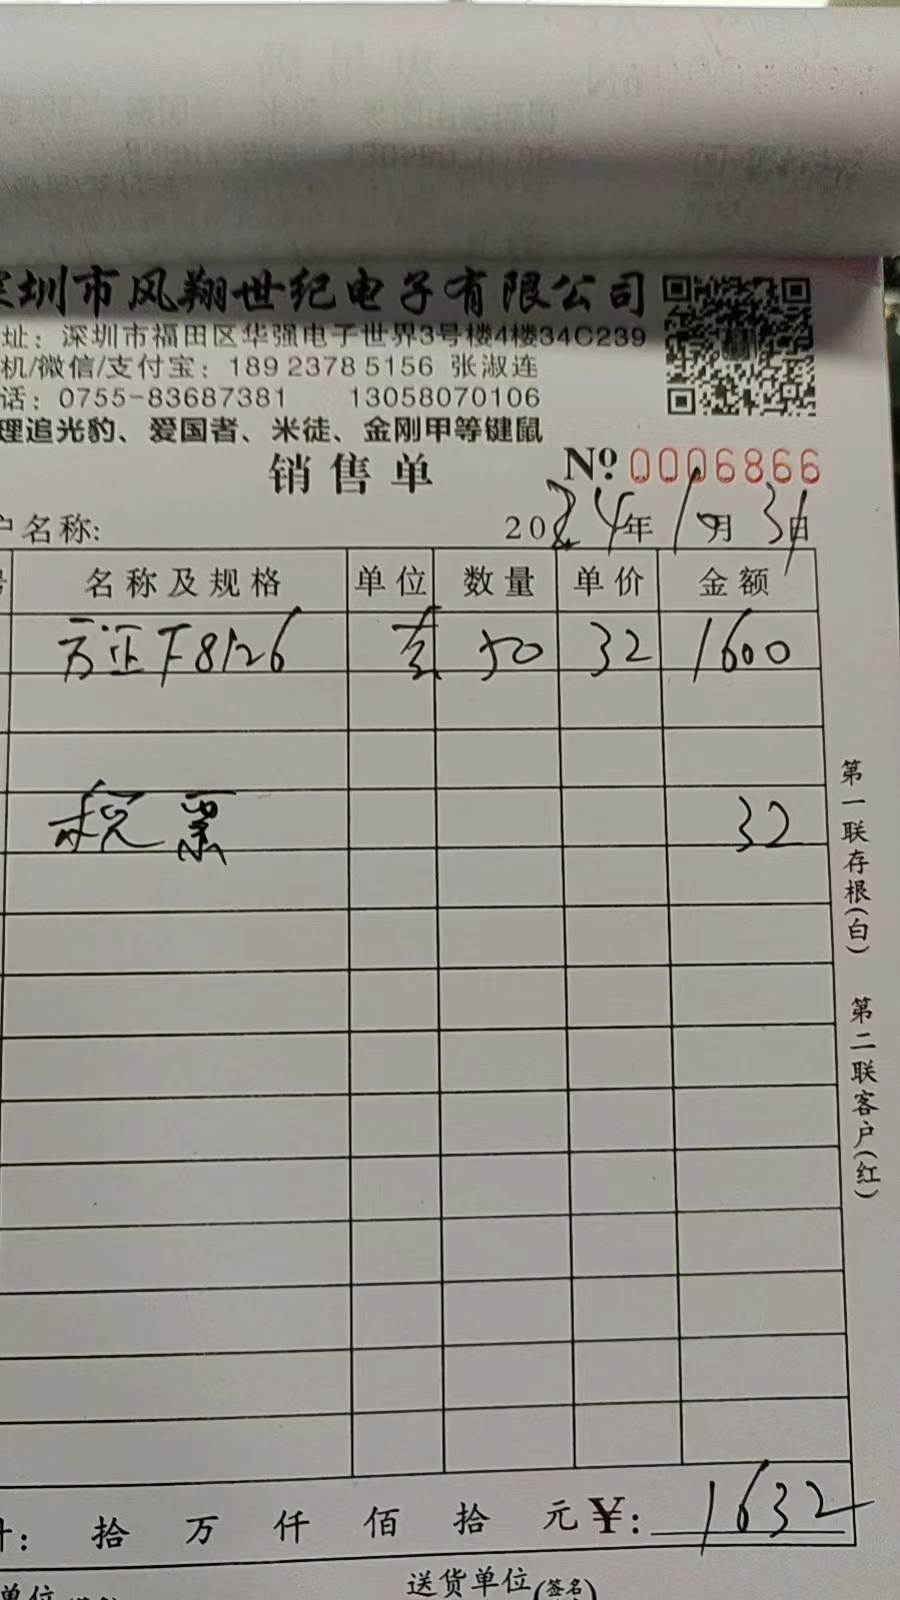 深圳市风翔世纪电子有限公司
址：深圳市福田区华强电子世界3号楼4楼34C239
机/微信/支付宝：189 2378 5156 张淑连
话：0755-83687381 13058070106
理追光豹、爱国者、米徒、金刚甲等键鼠
销售单 Nº 0006866
户名称： 2024年1月31日
号 名称及规格 单位 数量 单价 金额
方正F8126 套 50 32 1600
税票 32
计： 拾 万 仟 佰 拾 元 ¥: 1632
单位 送货单位(签名)
第一联存根(白) 第二联客户(红)